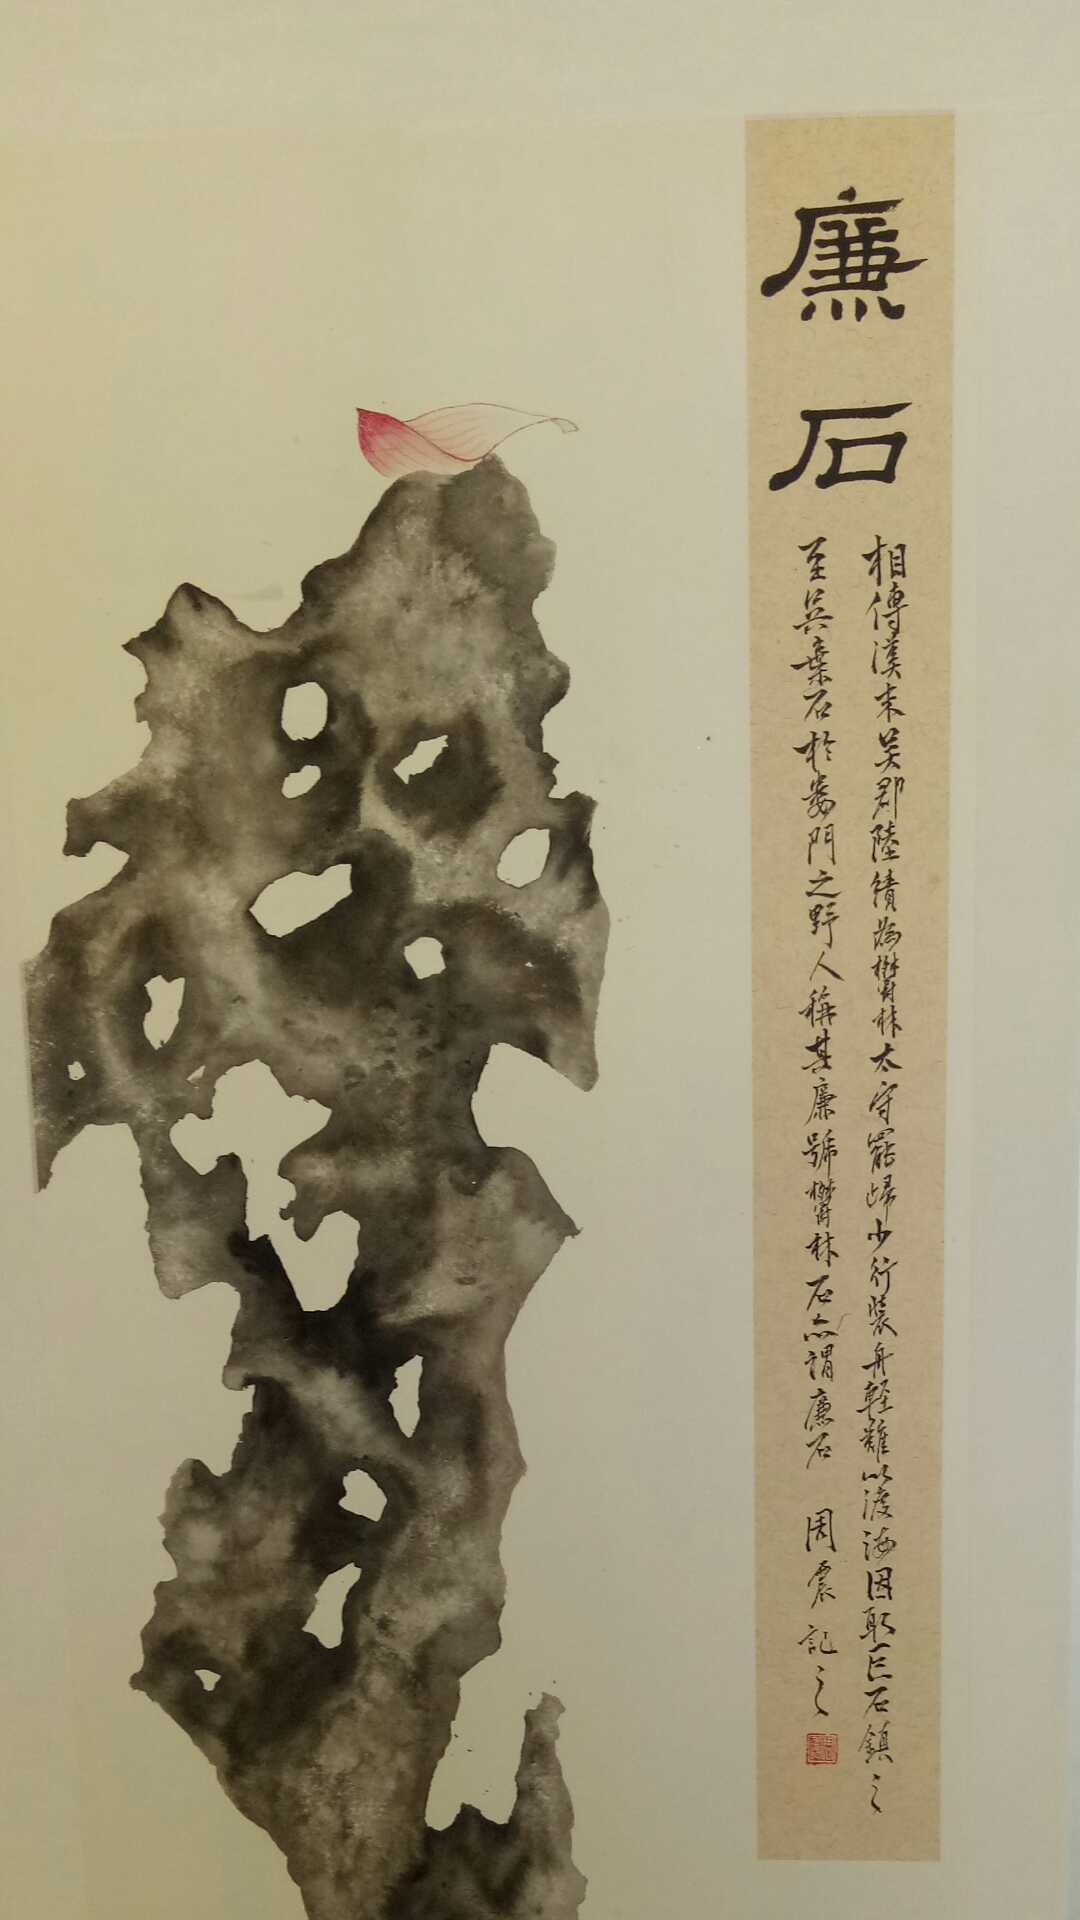 廉石
相傳漢末吳郡陸績為鬱林太守罷歸少行裝舟輕難以渡海因取巨石鎮之
至吳棄石於婁門之野人稱其廉號鬱林石亦謂廉石 周震記之